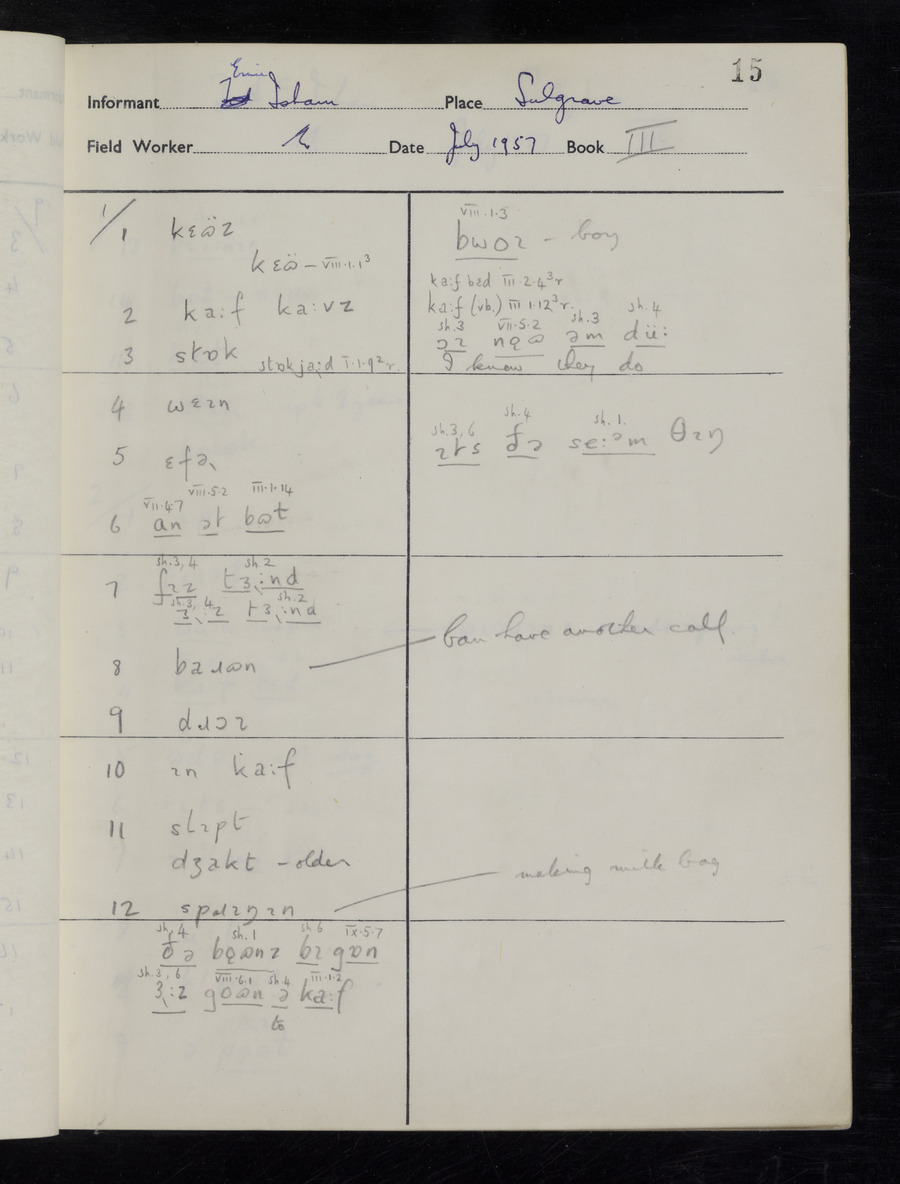 15
Informant Ernie Isham Place Sulgrave
Field Worker Date July 1957 Book III
1/1 kɛöz
kɛö – VIII.1.1³
2 ka:f ka:vz
3 stɒk stɒkja:d I.1.9²r.
4 wɛɪn
5 ɛfəɹ
VII.4.7 VIII.5.2 III.1.14
6 an ət bɷt
sh.3, 4 sh.2
7
sh.3, 4 sh.2
8 baɹɷn
9 dɹɔɪ
10 ɪn ka:f
11 slɪpt
dʒakt – older
12 spɹɪŋɪn
sh.4 sh.1 sh.6 IX.5.7
ðə bɷnz bɪ gɒn
sh.3, 6 VIII.6.1 sh.4 III.1.2
goɷn ə ka:f
to
VIII.1.3
bwɔɪ – boy
ka:f bɛd III.2.4³r
ka:f (vb.) III 1.12³r.
sh.3 VII.5.2 sh.3 sh.4
əm dü:
I know they do
sh.3, 6 sh.4 sh.1.
ɪts ðə se:əm θɪŋ
can have another calf
making milk bag